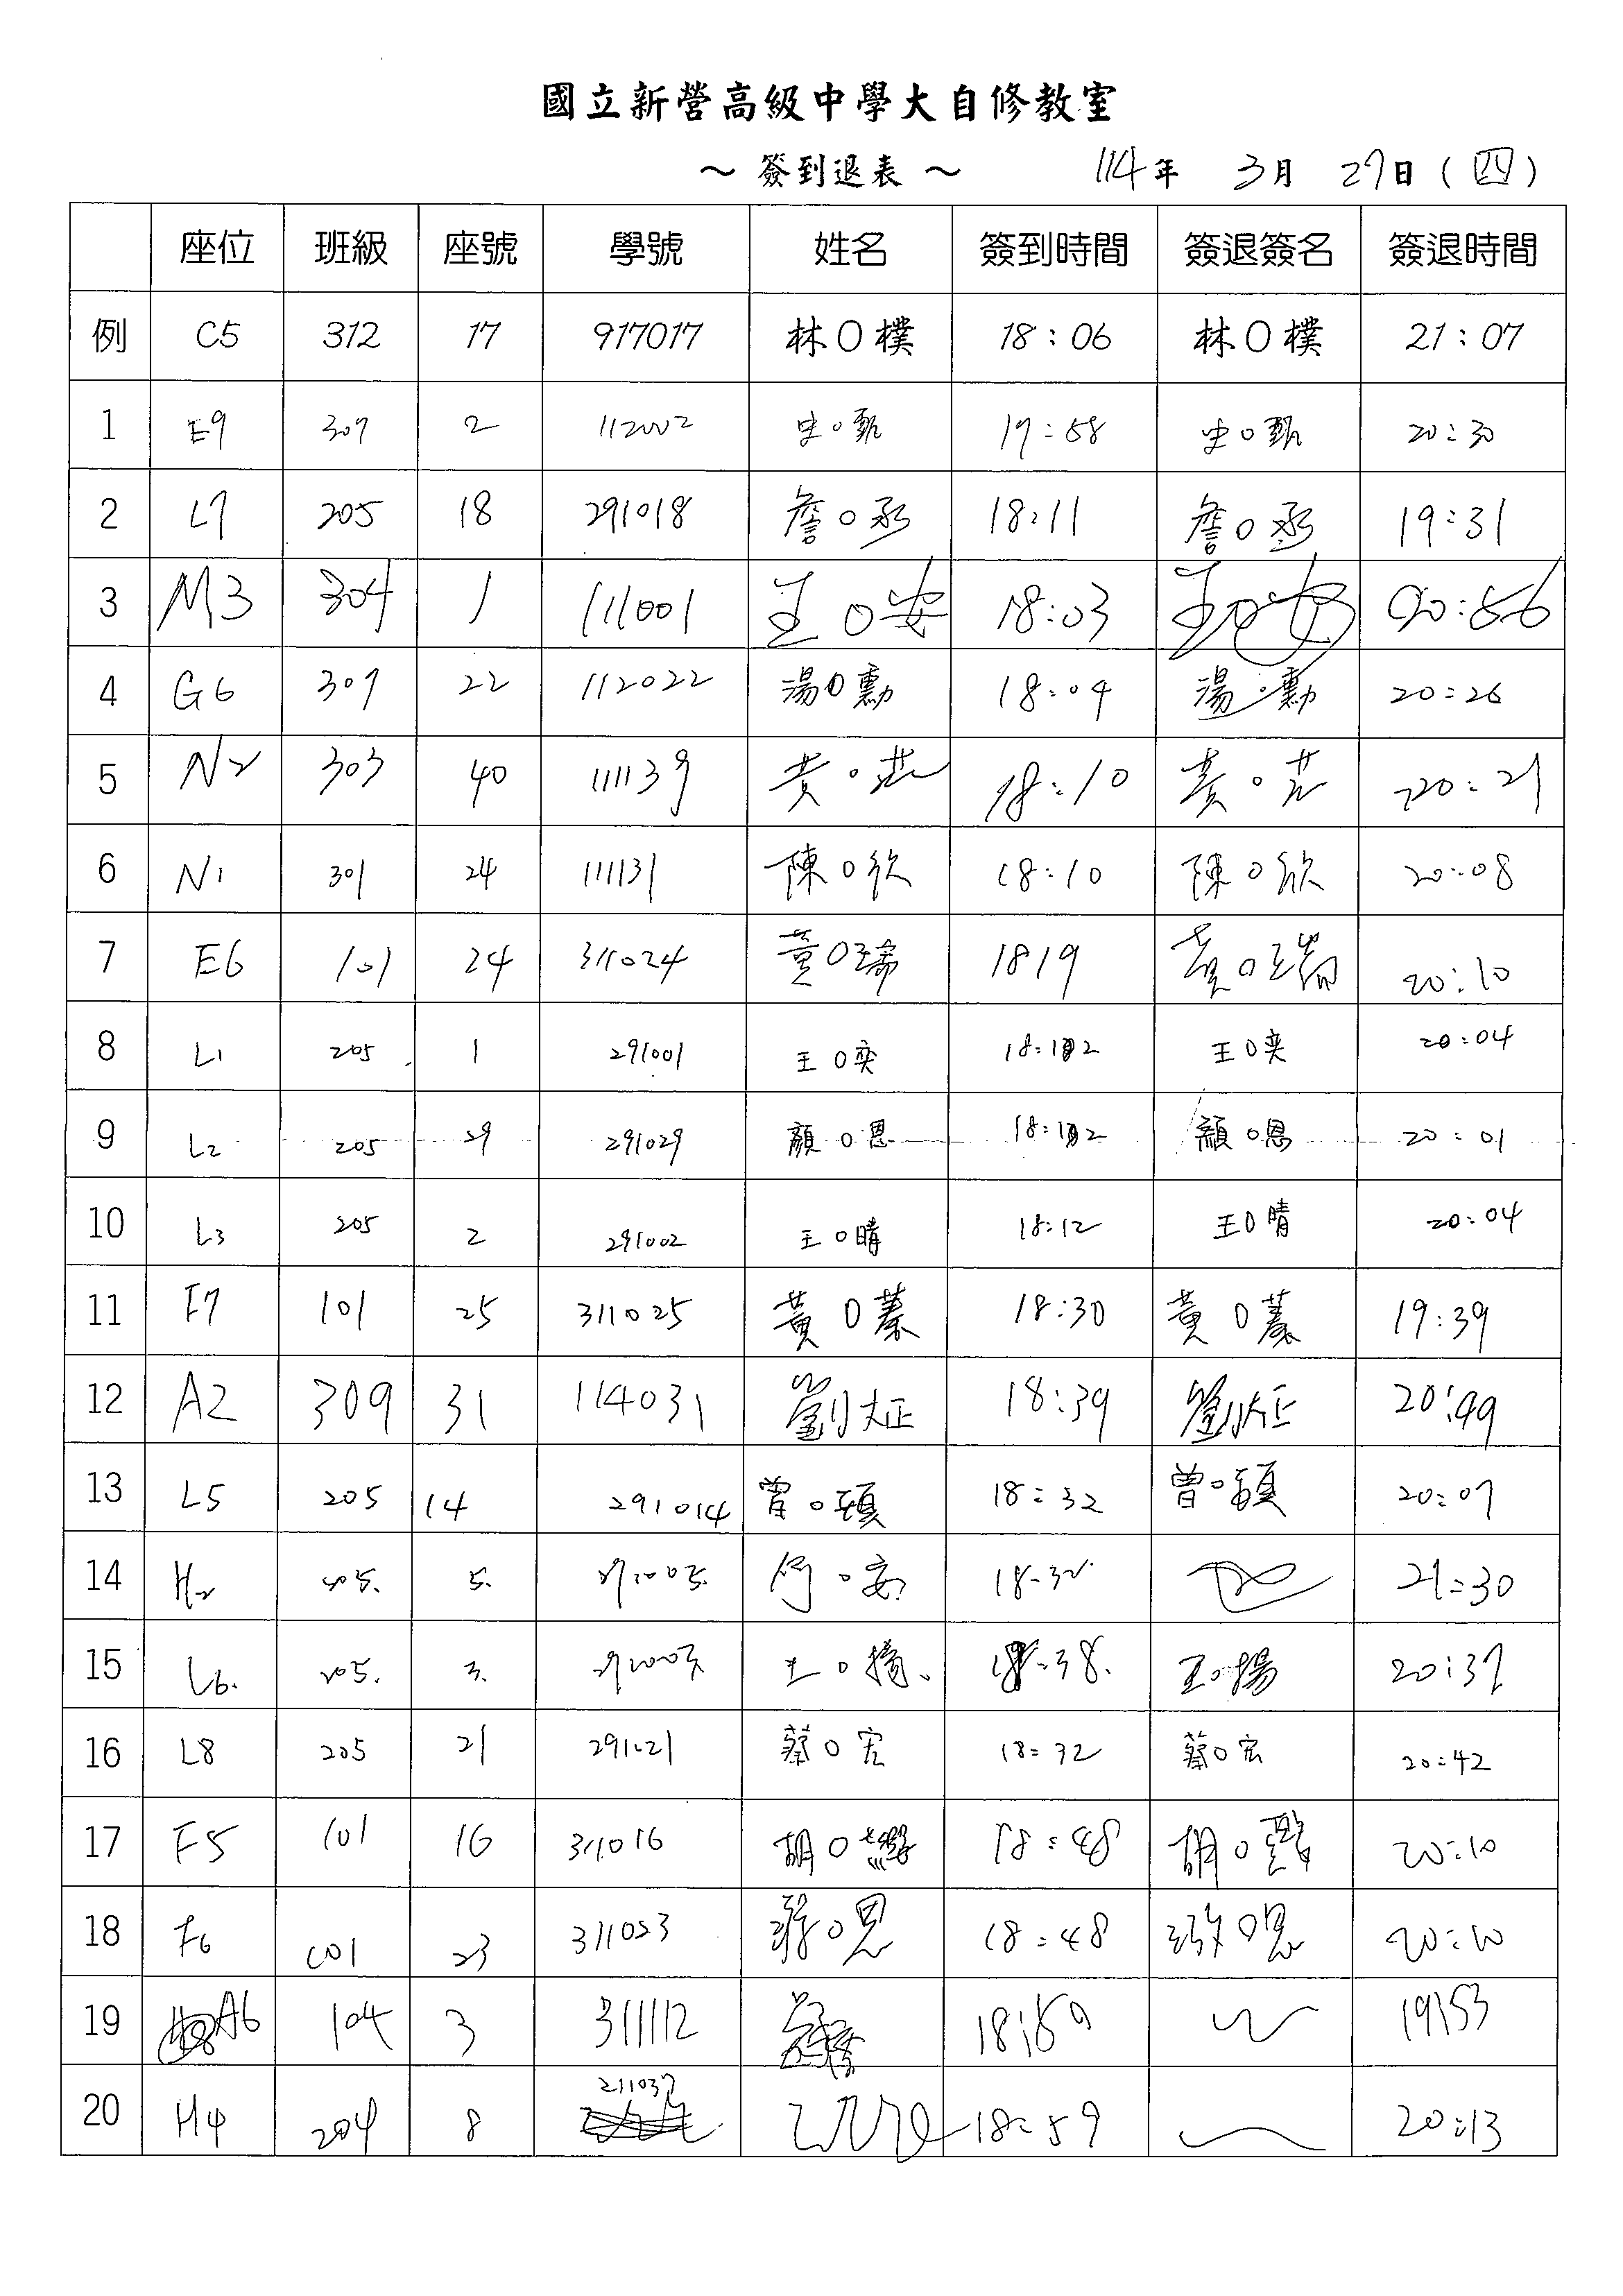 國立新營高級中學大自修教室
～ 簽到退表 ～ 114年 3月 27日 (四)
座位 班級 座號 學號 姓名 簽到時間 簽退簽名 簽退時間
例 C5 312 17 917017 林O樸 18:06 林O樸 21:07
1 E9 307 2 112002 史O甄 17:58 史O甄 20:30
2 L7 205 18 291018 詹O丞 18:11 詹O丞 19:31
3 M3 304 1 111001 王O安 18:03 王O安 20:56
4 G6 307 22 112022 湯O勳 18:04 湯O勳 20:26
5 N2 303 40 111139 黃O芸 18:10 黃O芸 20:21
6 N1 301 24 111131 陳O欣 18:10 陳O欣 20:08
7 E6 101 24 311024 黃O瑞 1819 黃O瑞 20:10
8 L1 205 1 291001 王O奕 18:12 王O奕 20:04
9 L2 205 29 291029 顏O恩 18:12 顏O恩 20:01
10 L3 205 2 291002 王O晴 18:12 王O晴 20:04
11 F7 101 25 311025 黃O蓁 18:30 黃O蓁 19:39
12 A2 309 31 114031 劉大正 18:39 劉大正 20:49
13 L5 205 14 291014 曾O穎 18:32 曾O穎 20:07
14 H2 205. 5. 291005. 何O安 18:32 21:30
15 L6. 205. 3. 291003 王O揚 18:38. 王O揚 20:37
16 L8 205 21 291021 蔡O宏 18:32 蔡O宏 20:42
17 F5 101 16 311016 胡O 18:48 胡O 20:10
18 F6 101 23 311023 O恩 18:48 O恩 20:10
19 A6 104 3 311112 18:59 19:53
20 H4 204 8 211037 18:59 20:13